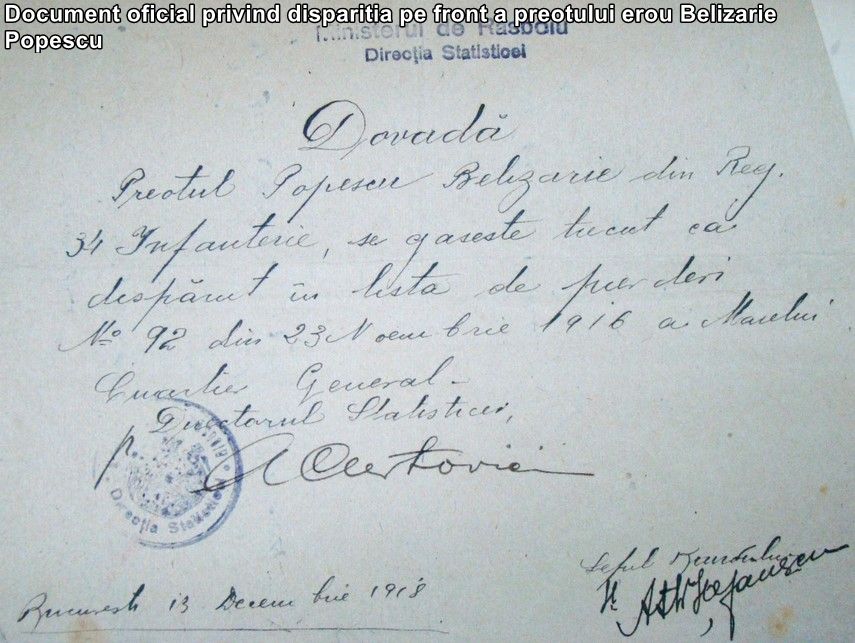 Document oficial privind disparitia pe front a preotului erou Belizarie
Popescu
Ministerul de Răsboiu
Direcția Statisticei
Dovadă
Preotul Popescu Belizarie din Reg.
34 Infanterie, se gaseste trecut ca
dispărut în lista de pierderi
No 92 din 23 Noembrie 1916 a Marelui
Cuartier General.
Directorul Statisticei,
p.
Direcția Statisticei
Șeful
București 13 Decembrie 1918